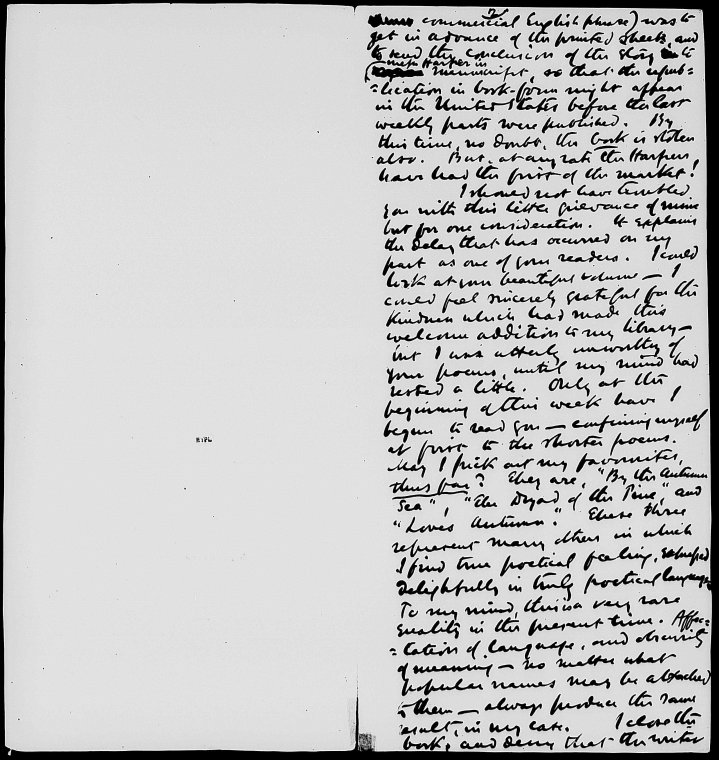 2
commercial English phrase) was to
get in advance of the printed sheets, and
to send the conclusion of the story to
Messrs Harper in
manuscript, so that the repub=
=lication in book-form might appear
in the United States before the last
weekly parts were published. By
this time, no doubt, the book is stolen
also. But, at any rate the Harpers
have had the first of the market!
I should not have troubled
you with this little grievance of mine
but for one consideration. It explains
the delay that has occurred on my
part as one of your readers. I could
look at your beautiful volume — I
could feel sincerely grateful for the
kindness which had made this
welcome addition to my library —
but I was utterly unworthy of
your poems, until my mind had
rested a little. Only at the
beginning of this week have I
begun to read you — confining myself
at first to the shorter poems.
May I pick out my favourites,
thus far? They are, "By the Autumn
Sea", "The Dryad of the Pine", and
"Loves Autumn." These three
represent many others in which
I find true poetical feeling, expressed
delightfully in truly poetical language.
To my mind, this is a very rare
quality in the present time. Affec=
=tation of language, and obscurity
of meaning — no matter what
popular names may be attached
to them — always produce the same
result, in my case. I close the
book, and deny that the writer